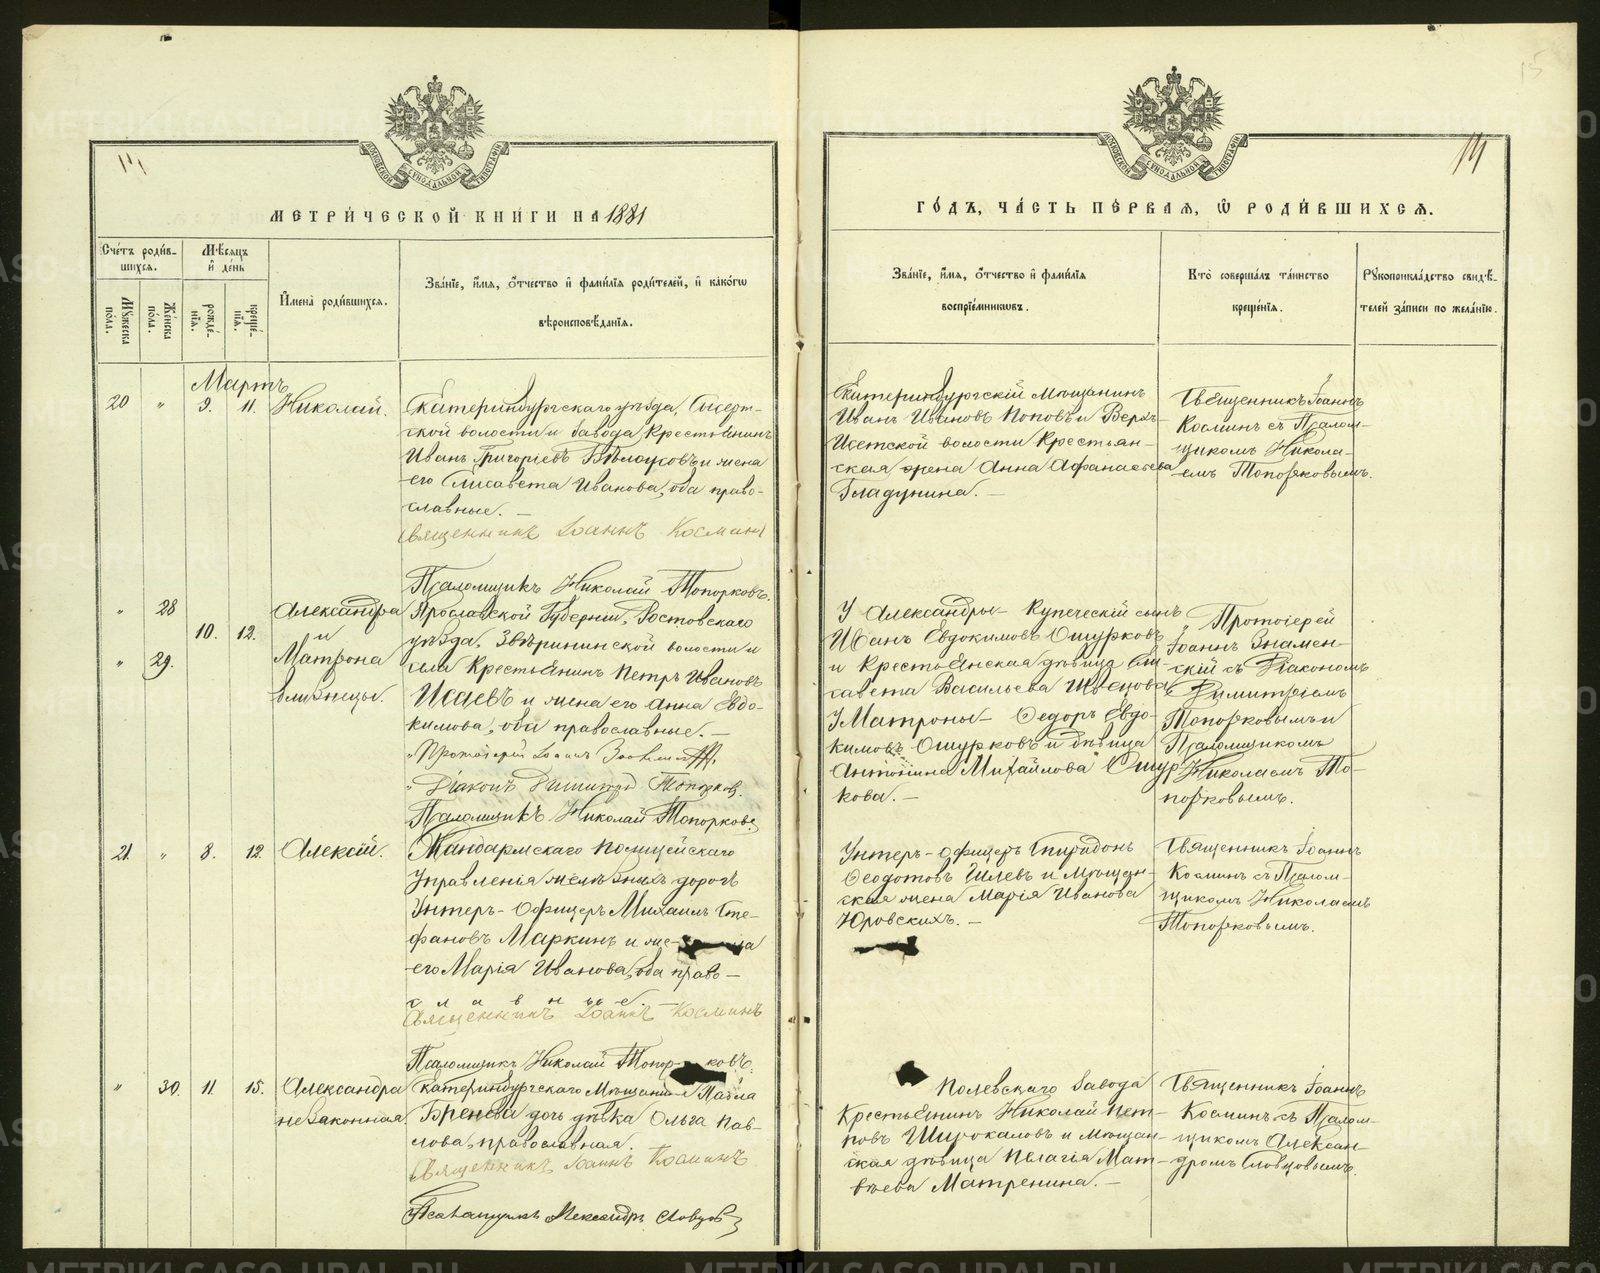 МЕТРИ́ЧЕСКОЙ КНИ́ГИ НА 1881
Счéтъ роди́в-
шихся.
Мѣ́сяцъ
и́ дéнь
Мꙋ́жеска
пóла.
Жéнска
пóла.
рождé-
нїѧ.
крещé-
нїѧ.
И҆менà роди́вшихся.
Звáнїе, и҆́мя, ѻ҆́тчество и҆ фами́лїя роди́телей, и҆ какóгѡ
вѣроисповѣ́данїя.
Мартъ
20 " 9. 11. Николай.
Екатеринбургскаго уѣзда, Сысерт-
ской волости и завода, Крестьянинъ
Иванъ Григорьевъ Бѣлоусовъ и жена
его Елисавета Иванова, оба право-
славные. —
Священникъ Іоаннъ Косминъ
Псаломщикъ Николай Топорковъ.
" 28
" 29.
10. 12.
Александра
и
Матрона
близнецы.
Ярославской Губерніи, Ростовскаго
уѣзда, Звѣрининской волости и
села Крестьянинъ Петръ Ивановъ
Исаевъ и жена его Анна Евдо-
кимова, оба православные. —
Протоіерей Іоаннъ Знаменскій
Діаконъ Димитрій Топорковъ.
Псаломщикъ Николай Топорковъ.
21. " 8. 12. Алексій.
Жандармскаго Полицейскаго
Управленія желѣзныхъ дорогъ
Унтеръ-Офицеръ Михаилъ Сте-
фановъ Маркинъ и же-на
его Марія Иванова, оба право-
славные. —
Священникъ Іоаннъ Косминъ
Псаломщикъ Николай Топорковъ.
" 30. 11. 15. Александра
незаконная.
Екатеринбургскаго Мѣщанина Павла
дочь дѣвка Ольга Пав-
лова, православная.
Священникъ Іоаннъ Косминъ
Псаломщикъ Александръ Словцовъ
ГÓДЪ, ЧÁСТЬ ПÉРВАЯ, Ѡ҆ РОДИ́ВШИХСЯ.
14
15
Звáнїе, и҆́мя, ѻ҆́тчество и҆ фами́лїя
воспрїéмникѡвъ.
Ктò совершáлъ тáинство
крещéнїя.
Рꙋкоприклáдство свидѣ́-
телей зáписи по желáнїю.
Екатеринбургскій мѣщанинъ
Иванъ Ивановъ Поповъ и Верхъ-
Исетской волости Крестьян-
ская жена Анна Афанасьева
Гладунина. —
Священникъ Іоаннъ
Косминъ съ Псалом-
щикомъ Никола-
емъ Топорковымъ.
У Александры — Купеческій сынъ
Иванъ Евдокимовъ Ошурковъ
и Крестьянская дѣвица Ели-
савета Васильева Швецова
У Матроны — Ѳедоръ Евдо-
кимовъ Ошурковъ и дѣвица
Антонина Михайлова Ошур
кова. —
Протоіерей
Іоаннъ Знамен-
скій съ Діакономъ
Димитріемъ
Топорковымъ и
Псаломщикомъ
Николаемъ То-
порковымъ.
Унтеръ-Офицеръ Спиридонъ
Ѳеодотовъ Шлевъ и Мѣщан-
ская жена Марія Иванова
Юровскихъ. —
Священникъ Іоаннъ
Косминъ съ Псалом-
щикомъ Николаемъ
Топорковымъ.
Полевскаго завода
Крестьянинъ Николай Пет-
ровъ Широкаловъ и Мѣщан-
ская дѣвица Пелагія Мат-
вѣева Матренина. —
Священникъ Іоаннъ
Косминъ съ Псалом-
щикомъ Алексан-
дромъ Словцовымъ.
METRIKI.GASO-URAL.RU